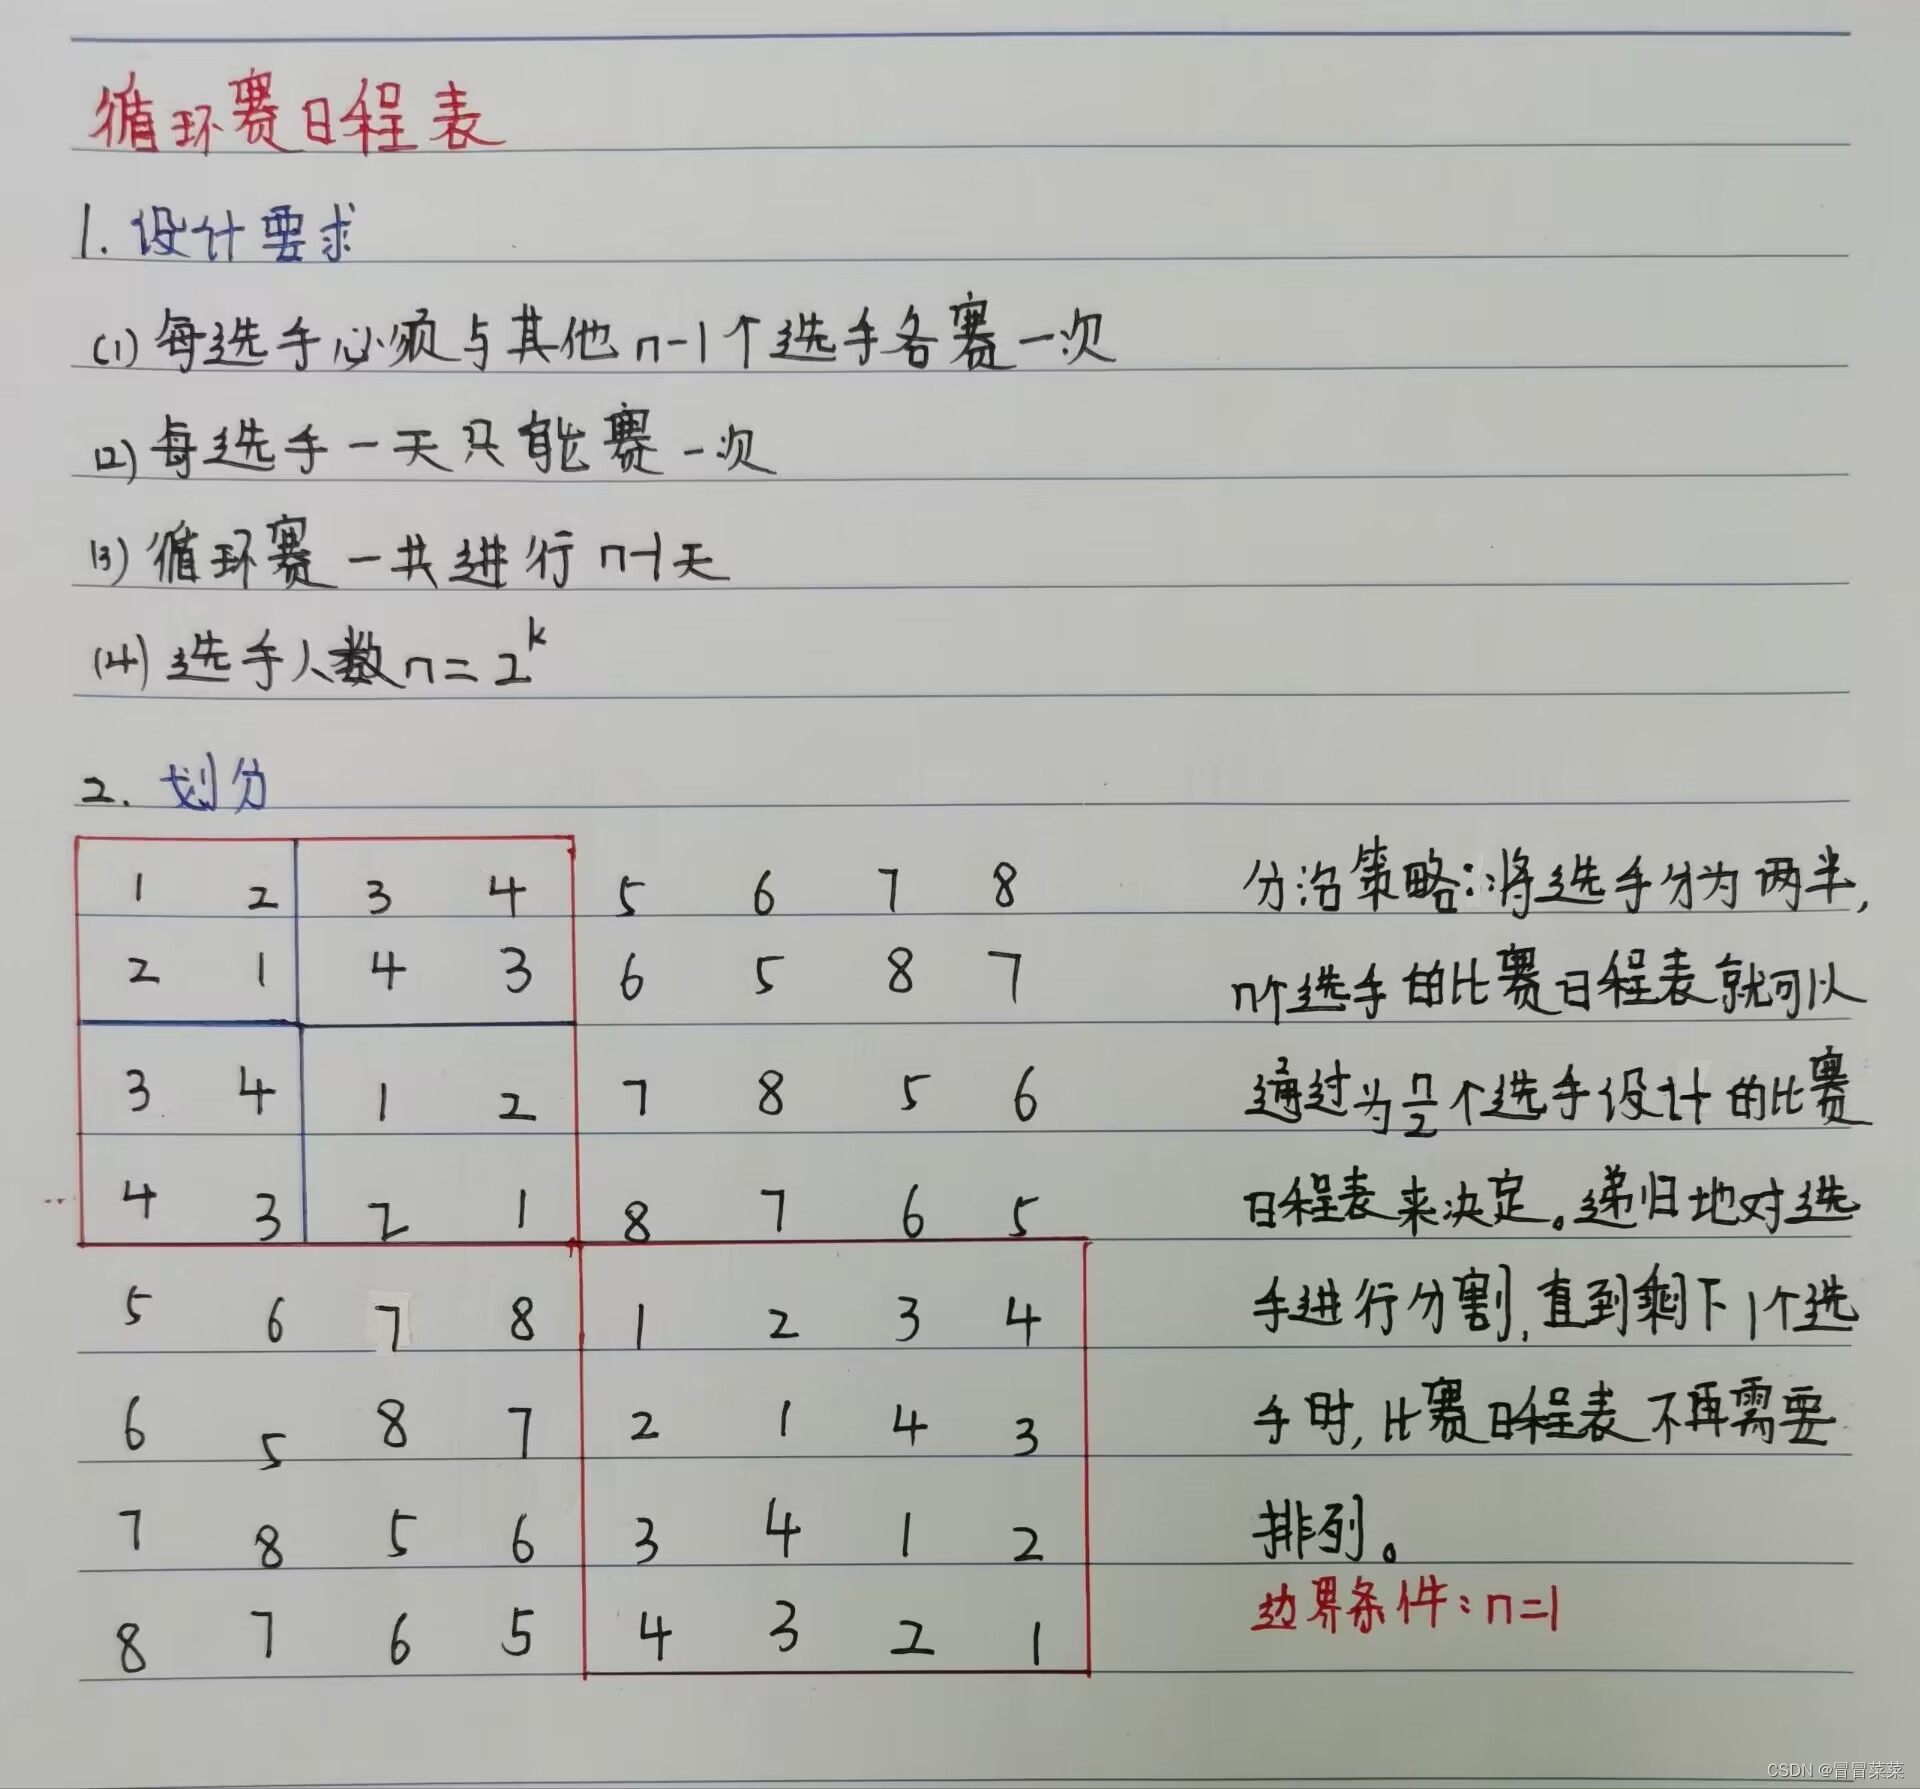 循环赛日程表
1. 设计要求
(1) 每选手必须与其他n-1个选手各赛一次
(2) 每选手一天只能赛一次
(3) 循环赛一共进行n-1天
(4) 选手人数n=2^k
2. 划分
1 2 3 4 5 6 7 8
2 1 4 3 6 5 8 7
3 4 1 2 7 8 5 6
4 3 2 1 8 7 6 5
5 6 7 8 1 2 3 4
6 5 8 7 2 1 4 3
7 8 5 6 3 4 1 2
8 7 6 5 4 3 2 1
分治策略:将选手分为两半,
n个选手的比赛日程表就可以
通过为n/2个选手设计的比赛
日程表来决定。递归地对选
手进行分割,直到剩下1个选
手时,比赛日程表不再需要
排列。
边界条件:n=1
CSDN @冒冒菜菜